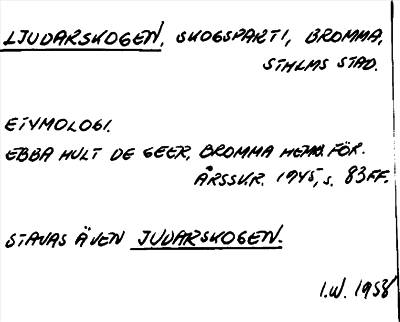 LJUDARSKOGEN, SKOGSPARTI, BROMMA,
STHLMS STAD.
ETYMOLOGI.
EBBA HULT DE GEER, BROMMA HEMB.FÖR.
ÅRSSKR. 1945, S. 83FF.
STAVAS ÄVEN JUDARSKOGEN.
I.W. 1958